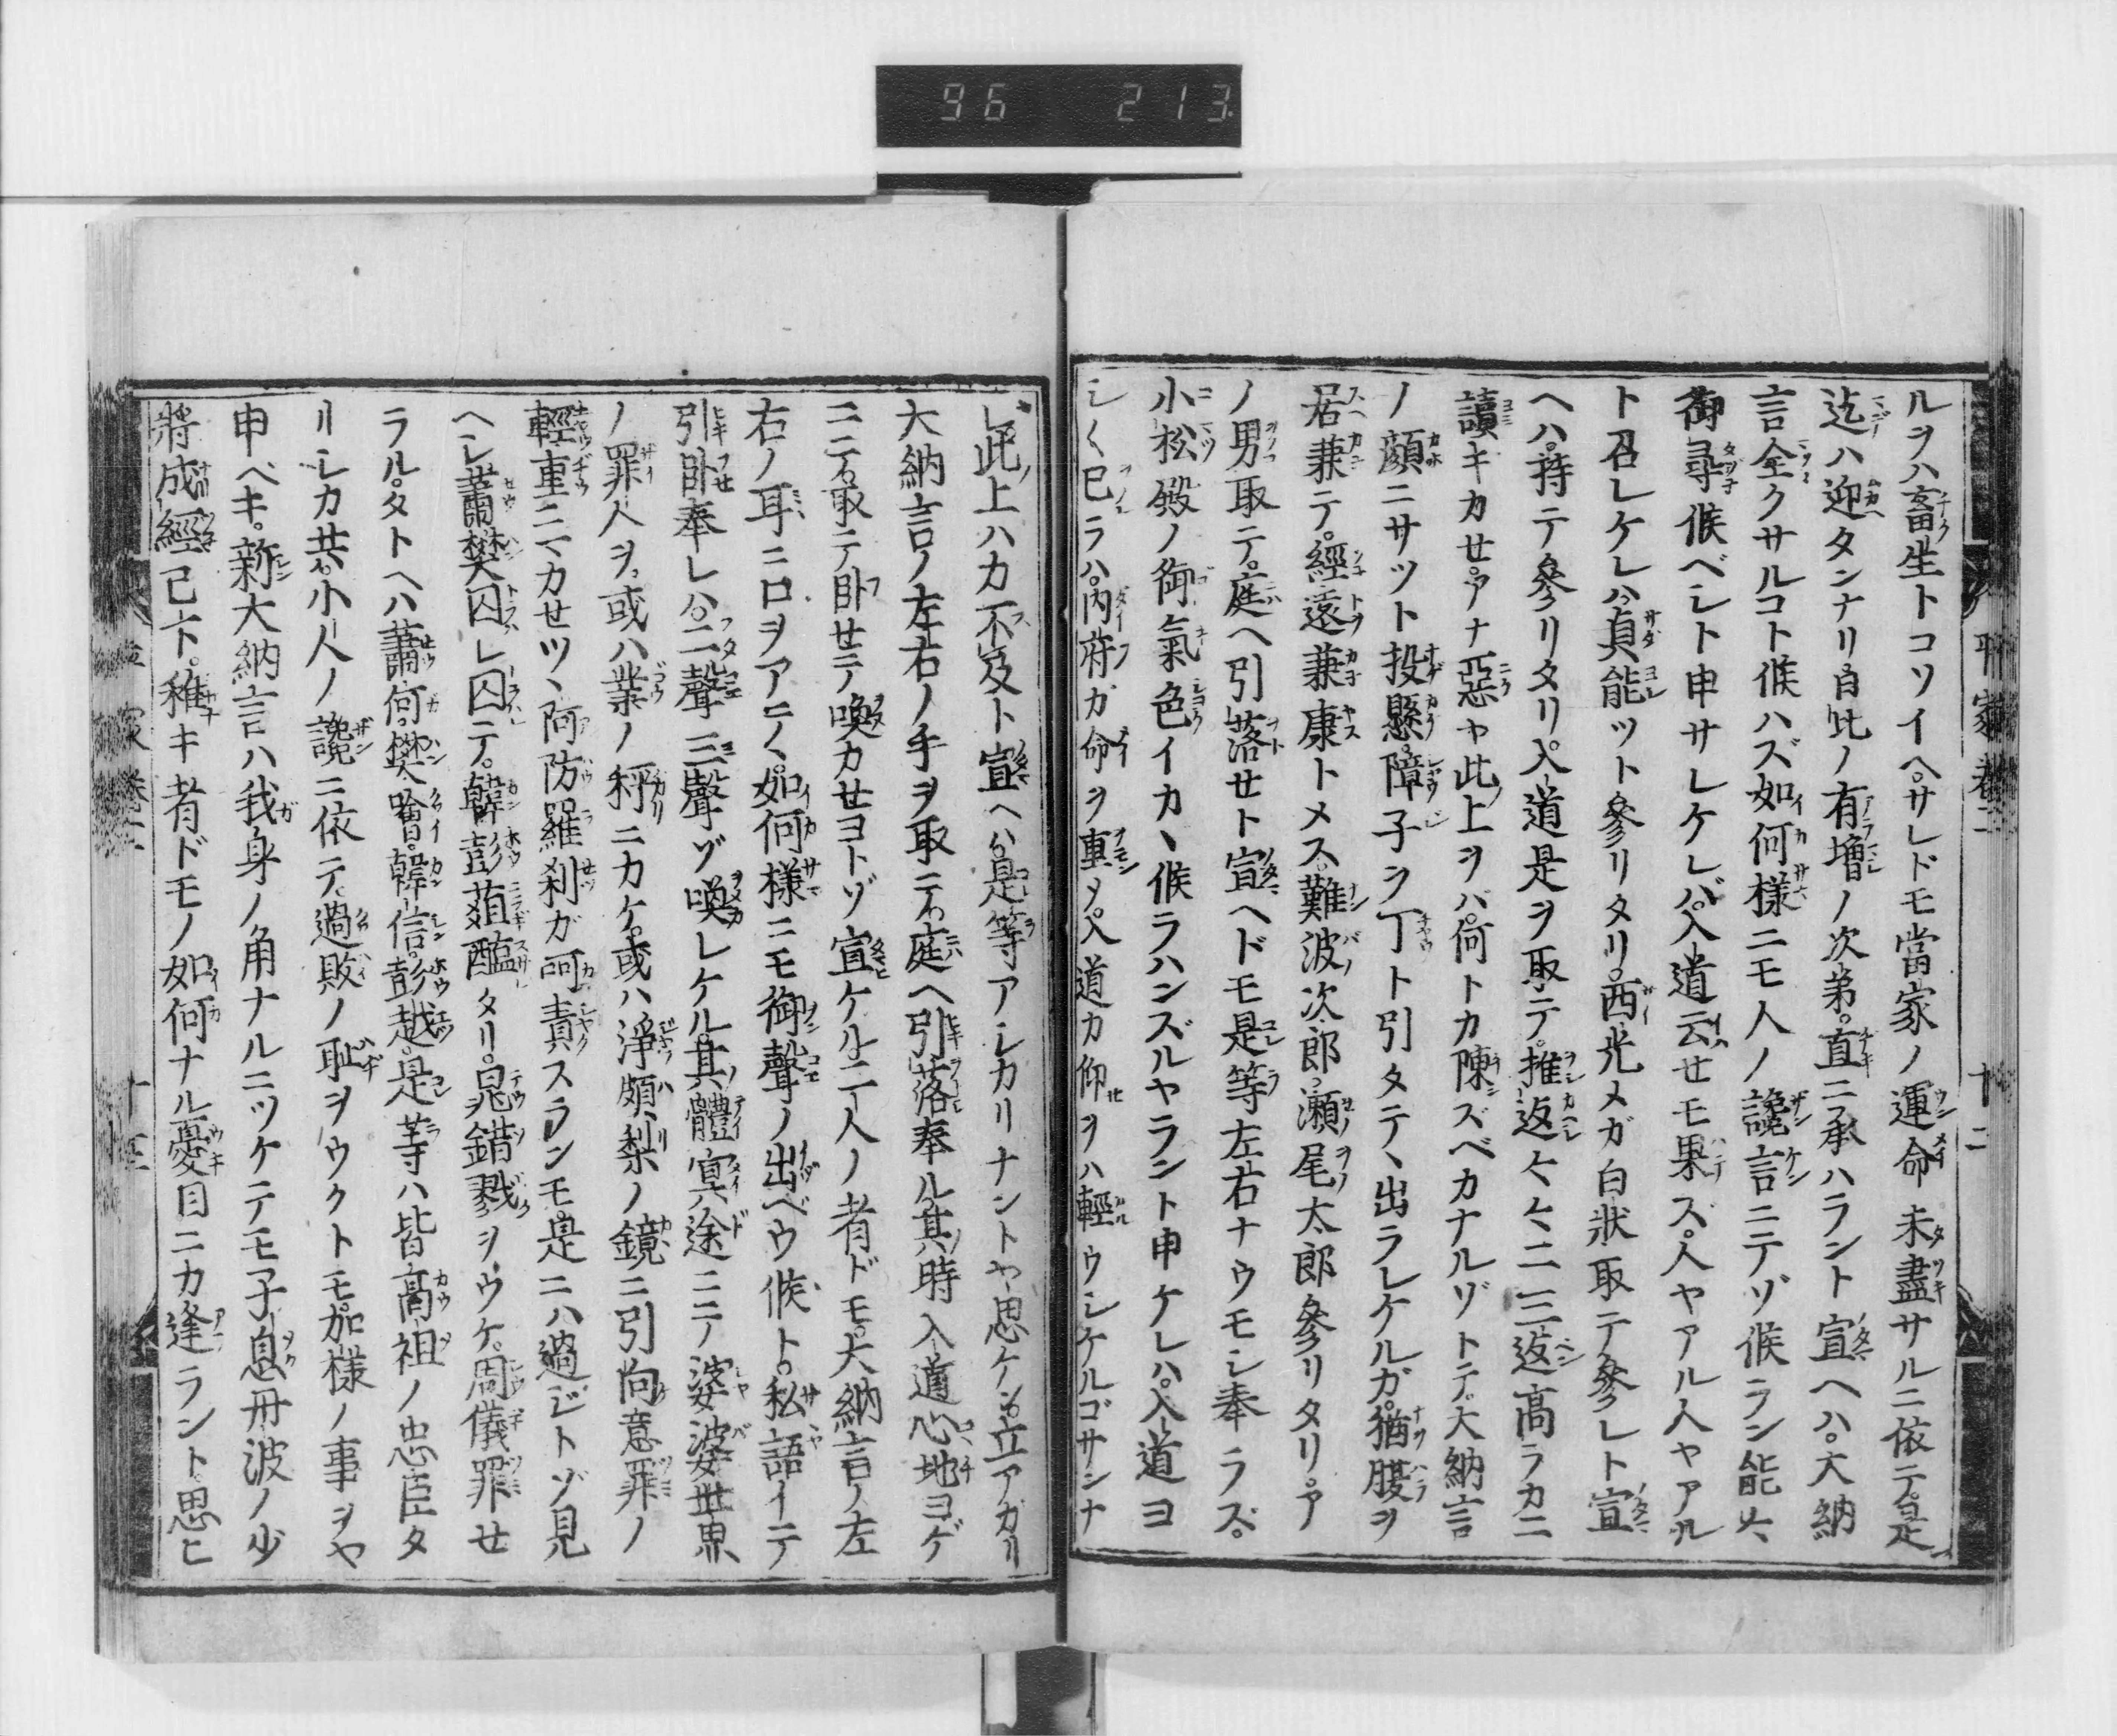 96 213
平家巻二 十二
ルヲハ畜生トコソイヘ。サレドモ當家ノ運命未盡サルニ依テ。是
迄ハ迎タンナリ。自比ノ有増ノ次第。直ニ承ハラント宣ヘハ。大納
言全クサルコト候ハズ如何様ニモ人ノ讒言ニテゾ候ラン能々
御尋候ベシト申サレケレバ。入道云せモ果ス。人ヤアル人ヤアル
ト召レケレハ。貞能ツト參リタリ。西光メガ白狀取テ參レト宣
ヘハ。持テ參リタリ。入道是ヲ取テ。推返々々二三返高ラカニ
讀キカせ。アナ惡ヤ此上ヲハ。何トカ陳ズベカナルゾトテ。大納言
ノ顔ニサツト投懸。障子ヲ丁ト引タテヽ出ラレケルガ。猶腹ヲ
居兼テ。經遠兼康トメス。難波次郎瀬尾太郎參リタリ。ア
ノ男取テ。庭ヘ引落せト宣ヘドモ是等左右ナウモシ奉ラズ。
小松殿ノ御氣色イカヽ候ラハンズルヤラント申ケレハ。入道ヨ
シ〱己ラハ。内府ガ命ヲ重メ。入道カ仰ヲハ輕ウシケルゴサンナ
レ。此上ハカ不及ト宣ヘハ。是等アシカリナントヤ思ケン。立アガリ
大納言ノ左右ノ手ヲ取テ。庭ヘ引落奉ル其時入道心地ヨゲ
ニテ。取テ卧せテ喚カせヨトゾ宣ケル。二人ノ者ドモ。大納言ノ左
右ノ耳ニ口ヲアテヽ。如何様ニモ御聲ノ出ベウ候ト。私語イテ
引卧奉レハ。二聲三聲ゾ喚レケル。其體冥途ニテ娑婆世界
ノ罪人ヲ。或ハ業ノ秤ニカケ。或ハ淨頗梨ノ鏡ニ引向意罪ノ
輕重ニマカせツヽ阿防羅刹ガ呵責スランモ。是ニハ過ジトゾ見
ヘシ蕭樊囚レ囚テ。韓彭葅醢タリ。晁錯戮ヲウケ。周儀罪せ
ラル。タトヘハ蕭何。樊噲。韓信。彭越。是等ハ皆高祖ノ忠臣タ
リシカ共。小人ノ讒ニ依テ。過敗ノ恥ヲウクトモ。加様ノ事ヲヤ
申ベキ。新大納言ハ我身ノ角ナルニツケテモ子息丹波ノ少
將成經已下。稚キ者ドモノ如何ナル憂目ニカ逢ラント思ヒ
平家巻二 十三